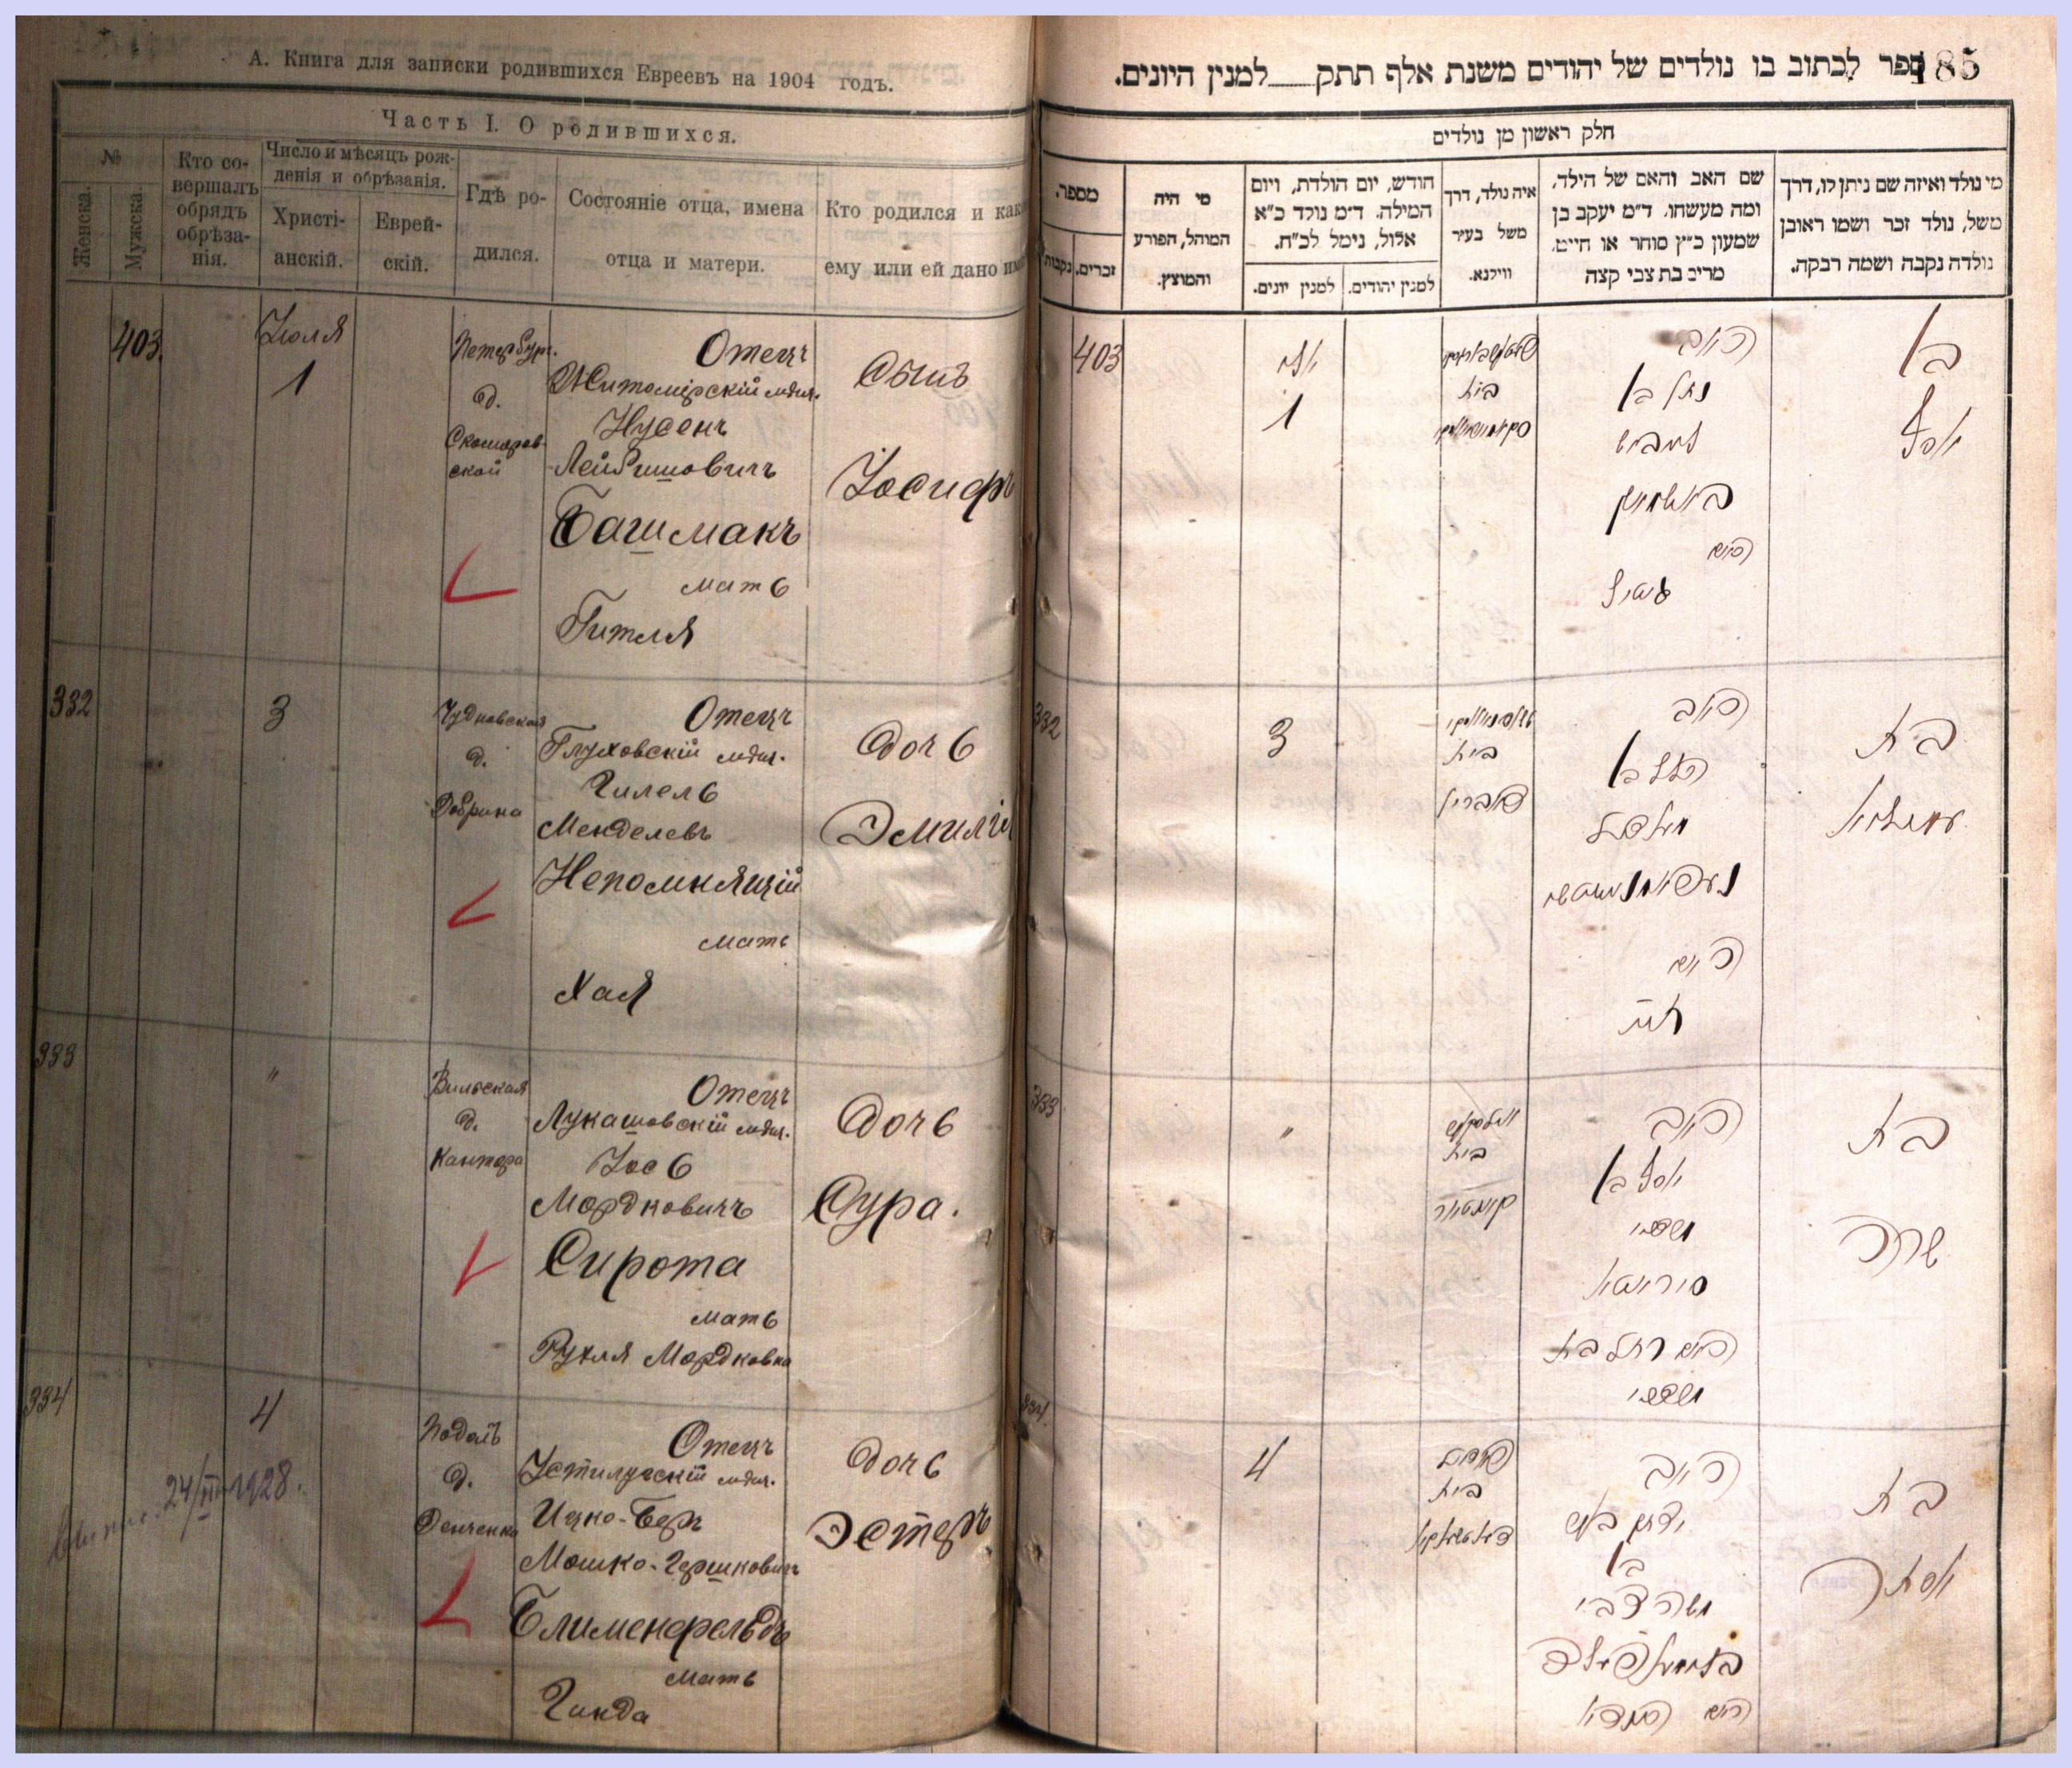 А. Книга для записки родившихся Евреевъ на 1904 годъ.
Часть I. О родившихся.
№
Женска.
Мужска.
Кто со-
вершалъ
обрядъ
обрѣза-
нія.
Число и мѣсяцъ рож-
денія и обрѣзанія.
Христі-
анскій.
Еврей-
скій.
Гдѣ ро-
дился.
Состояніе отца, имена
отца и матери.
Кто родился и как
ему или ей дано им
403
Іюля
1
Петербург.
д.
Скоморов-
ской
Отецъ
Житомірскій мѣщ.
Нусенъ
Лейбишовичъ
Башмакъ
мать
Гитля
Сынъ
Іосифъ
332
3
Чудновская
д.
Добрина
Отецъ
Глуховскій мѣщ.
Гилель
Менделевъ
Непомнящій
мать
Хая
Дочь
Эмилія
333
"
Вильская
д.
Кантора
Отецъ
Лукашовскій мѣщ.
Іось
Мордковичъ
Сирота
мать
Рухля Мордковна
Дочь
Сура.
334
4
24/III 1928.
Подолъ
д.
Денченко
Отецъ
Устилугскій мѣщ.
Ицко-Беръ
Мошко-Гершковичъ
Блименфельдъ
мать
Гинда
Дочь
Эстеръ
185
ספר לכתוב בו נולדים של יהודים משנת אלף תתק למנין היונים.
חלק ראשון מן נולדים
מי נולד ואיזה שם ניתן לו, דרך
משל, נולד זכר ושמו ראובן
נולדה נקבה ושמה רבקה.
שם האב והאם של הילד,
ומה מעשהו. ד״מ יעקב בן
שמעון כ״ץ סוחר או חייט,
מרים בת צבי קצה
איה נולד, דרך
משל בעיר
ווילנא.
חודש, יום הולדת, ויום
המילה. ד״מ נולד כ״א
אלול, נימל לכ״ח.
למנין יהודים.
למנין יונים.
מי היה
המוהל, הפורע
והמוצץ.
מספר.
זכרים.
נקבות
403
יולי
1
בית
האב
נתן בן
לייביש
באשמאק
האם
גיטל
בן
יוסף
332
3
בית
דאברין
האב
הלל בן
מענדל
האם
חי׳
בת
עמיליא
333
"
בית
קאנטאר
האב
יוסף בן
מרדכי
סיראטא
האם רחל בת
מרדכי
בת
שרה
334
4
פאדאל
בית
האב
יצחק בער
בן
משה צבי
בלימענפעלד
האם הינדא
בת
אסתר